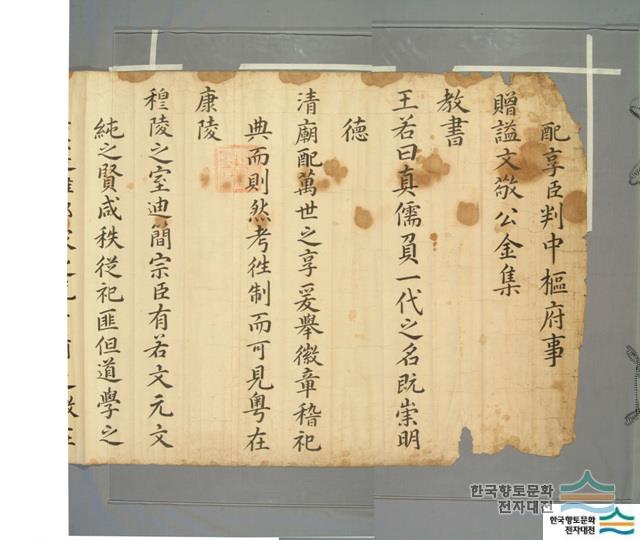 配享臣判中樞府事
贈諡文敬公金集
教書
王若曰真儒負一代之名既崇明
德
清廟配萬世之享爰舉徽章稽祀
典而則然考徃制而可見粵在
康陵
穆陵之室迪簡宗臣有若文元文
純之賢咸秩從祀匪但道學之
한국향토문화
전자대전
한국향토문화
전자대전